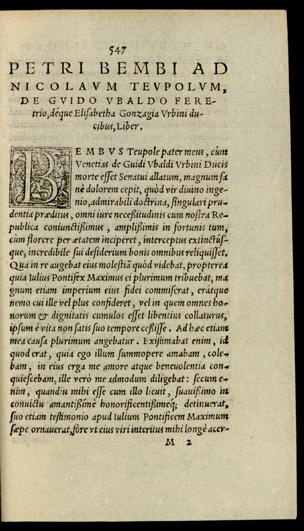 547
PETRI BEMBI AD
NICOLAVM TEVPOLVM,
DE GVIDO VBALDO FERE-
trio, déque Elisabetha Gonzagia Vrbini du-
cibus, Liber.
BEMBVS Teupole pater meus, cùm
Venetias de Guidi Vbaldi Vrbini Ducis
morte esset Senatui allatum, magnum sa
nè dolorem cepit, quòd vir diuino inge-
nio, admirabili doctrina, singulari pru-
dentia præditus, omni iure necessitudinis cum nostra Re-
publica coniunctissimus, amplissimis in fortunis tum,
cùm florere per ætatem inciperet, interceptus extinctús-
que, incredibile sui desiderium bonis omnibus reliquisset.
Qua in re augebat eius molestiã quòd videbat, propterea
quia Iulius Pontifex Maximus ei plurimum tribuebat, ma
gnum etiam imperium eius fidei commiserat, eratque
nemo cui ille vel plus confideret, vel in quem omnes ho-
norum & dignitatis cumulos esset libentius collaturus,
ipsum è vita non satis suo tempore cessisse. Ad hæc etiam
mea causa plurimum angebatur. Existimabat enim, id
quod erat, quia ego illum summopere amabam, cole-
bam, in eius erga me amore atque beneuolentia con-
quiescebam, ille verò me admodum diligebat: secum e-
nim, quandiu mihi esse cum illo licuit, suauissimo in
conuictu amantissimè honorificentissimeq; detinuerat,
suo etiam testimonio apud Iulium Pontificem Maximum
sæpe ornauerat, fore vt eius viri interitus mihi longè acer-
M 2